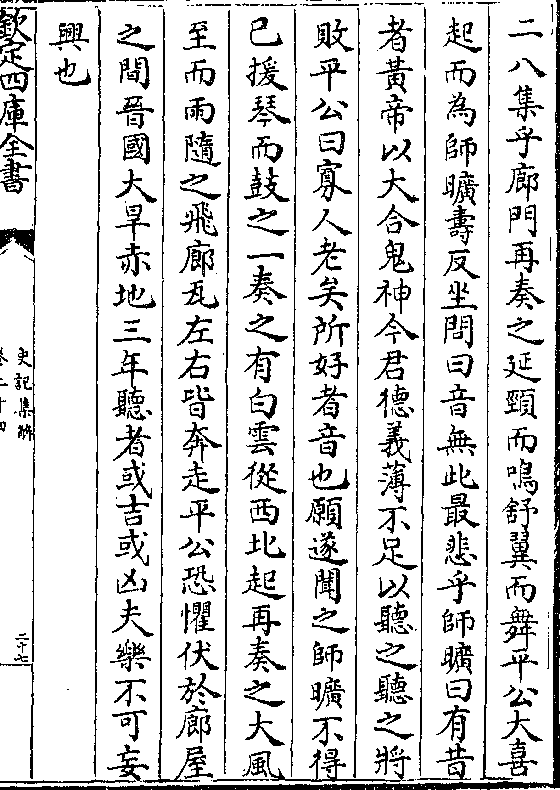 二八集乎廊門再奏之延頸而鳴舒翼而舞平公大喜
起而為師曠壽反坐問曰音無此最悲乎師曠曰有昔
者黃帝以大合鬼神今君德義薄不足以聽之聽之將
敗平公曰寡人老矣所好者音也願遂聞之師曠不得
已援琴而鼓之一奏之有白雲從西北起再奏之大風
至而雨隨之飛廊瓦左右皆奔走平公恐懼伏於廊屋
之間晉國大旱赤地三年聽者或吉或凶夫樂不可妄
興也
欽定四庫全書
史記集解
卷二十四
二十七